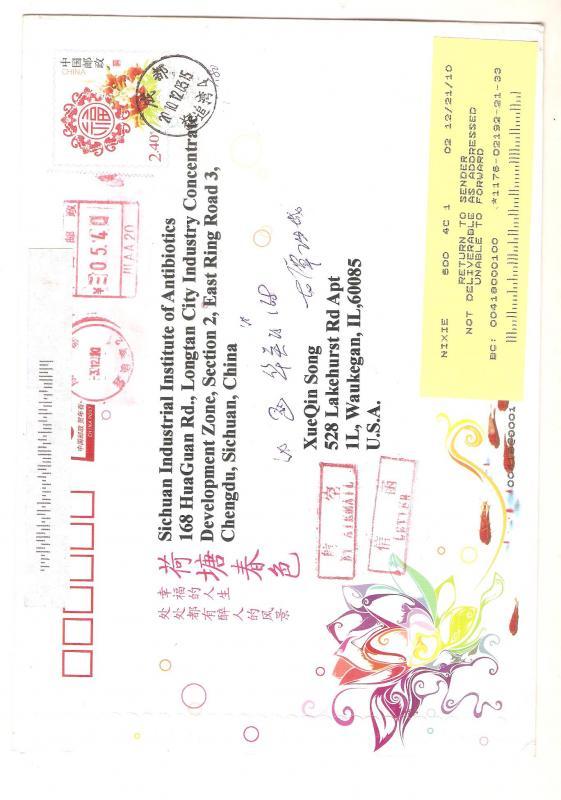 中国邮政
CHINA
福
2.40
2010.12.03.15
05.40
3.12.10
中国邮政 贺年有
CHINA POST
Sichuan Industrial Institute of Antibiotics
168 HuaGuan Rd., Longtan City Industry Concentrate
Development Zone, Section 2, East Ring Road 3,
Chengdu, Sichuan, China
168
XueQin Song
528 Lakehurst Rd Apt
1L, Waukegan, IL,60085
U.S.A.
航空
BY AIRMAIL
信函
LETTER
荷塘春色
幸福的人生
处处都有醉人的风景
NIXIE 600 4C 1 02 12/21/10
RETURN TO SENDER
NOT DELIVERABLE AS ADDRESSED
UNABLE TO FORWARD
BC: 00418000100 *1176-02192-21-33
00418000001